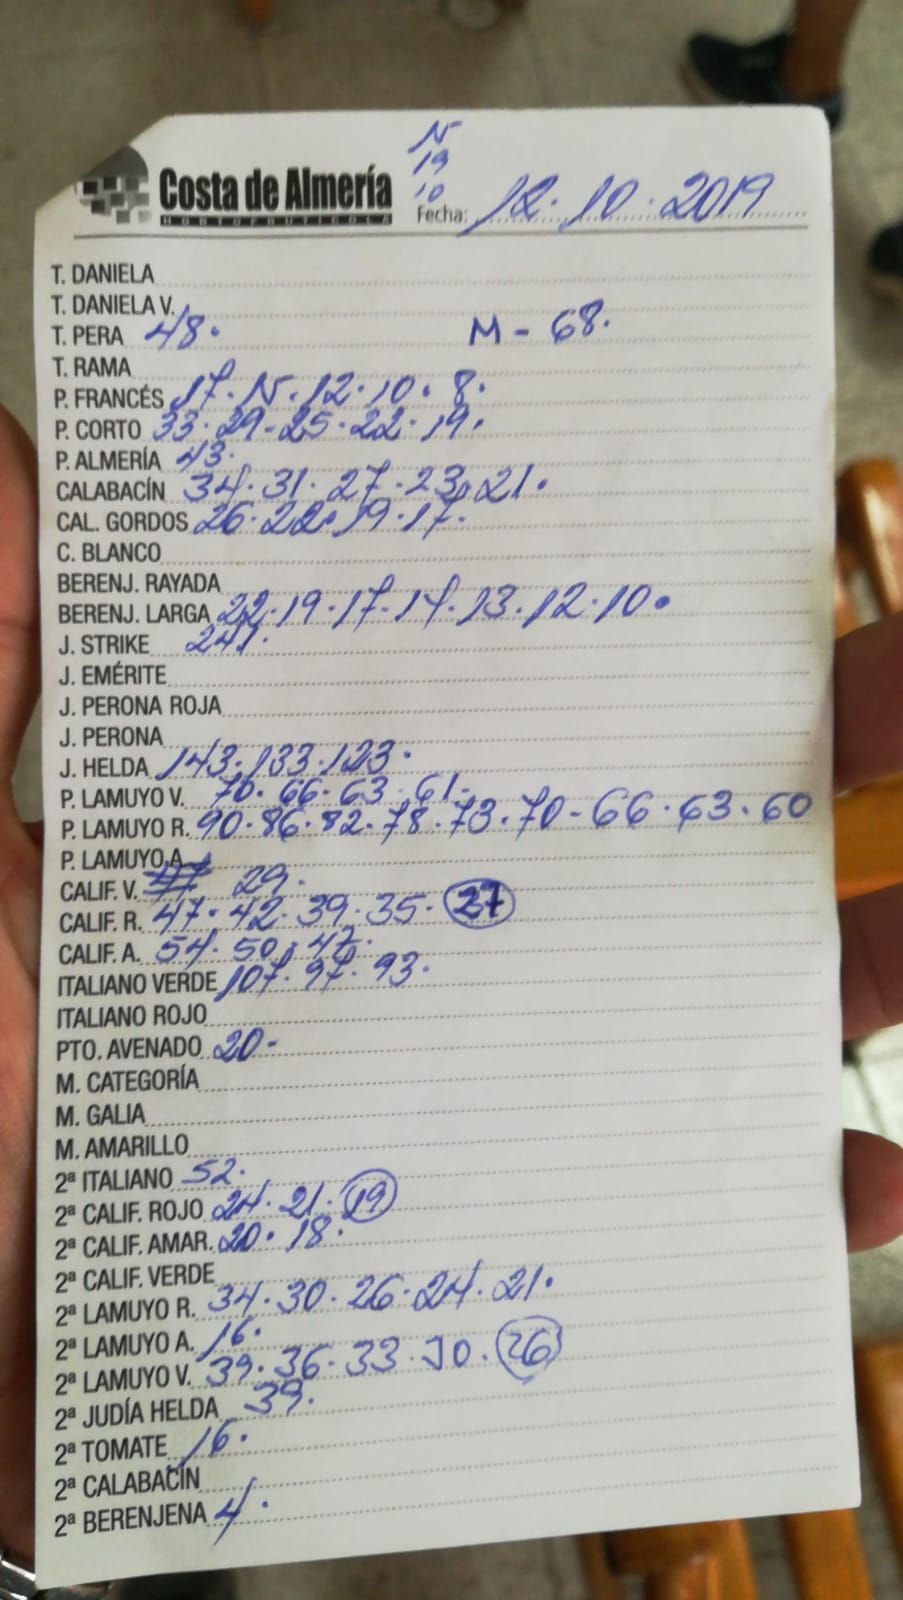 N
19
10
Costa de Almería
HORTOFRUTICOLA
Fecha: 12.10.2019
T. DANIELA
T. DANIELA V.
T. PERA 48. M - 68.
T. RAMA
P. FRANCÉS 17. N. 12. 10. 8.
P. CORTO 33. 29. 25. 22. 19.
P. ALMERÍA 43.
CALABACÍN 34. 31. 27. 23. 21.
CAL. GORDOS 26. 22. 19. 17.
C. BLANCO
BERENJ. RAYADA
BERENJ. LARGA 22. 19. 17. 14. 13. 12. 10.
J. STRIKE 241.
J. EMÉRITE
J. PERONA ROJA
J. PERONA
J. HELDA 143. 133. 123.
P. LAMUYO V. 70. 66. 63. 61.
P. LAMUYO R. 90. 86. 82. 78. 73. 70 - 66. 63. 60
P. LAMUYO A.
CALIF. V. 29.
CALIF. R. 47. 42. 39. 35. 27
CALIF. A. 54. 50. 47.
ITALIANO VERDE 107. 97. 93.
ITALIANO ROJO
PTO. AVENADO 20.
M. CATEGORÍA
M. GALIA
M. AMARILLO
2ª ITALIANO 52.
2ª CALIF. ROJO 24. 21. 19
2ª CALIF. AMAR. 20. 18.
2ª CALIF. VERDE
2ª LAMUYO R. 34. 30. 26. 24. 21.
2ª LAMUYO A. 16.
2ª LAMUYO V. 39. 36. 33. 30. 26
2ª JUDÍA HELDA 39.
2ª TOMATE 16.
2ª CALABACÍN
2ª BERENJENA 4.